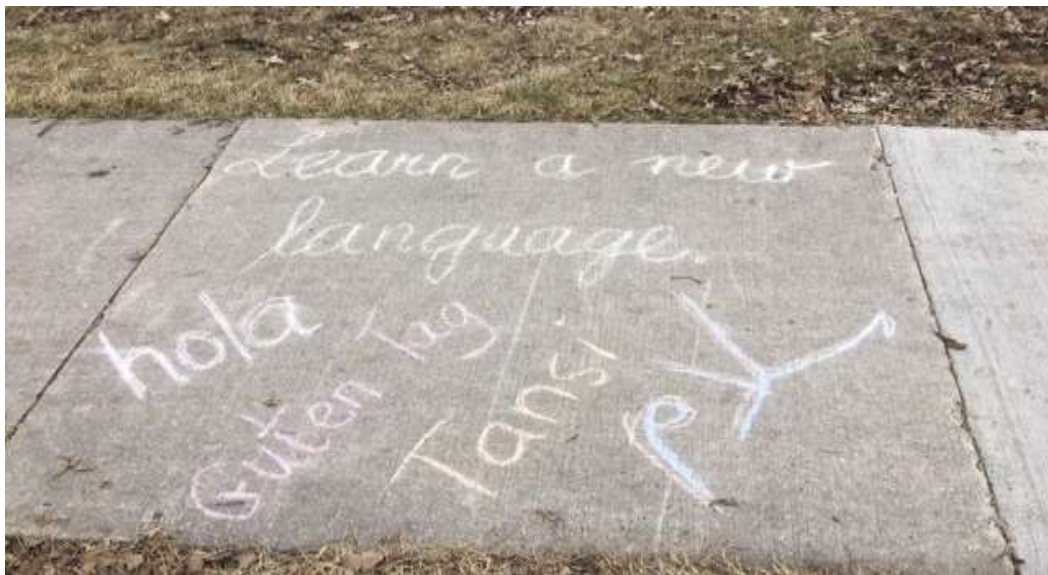 Learn a new
language.
hola
Guten Tag
Tansi